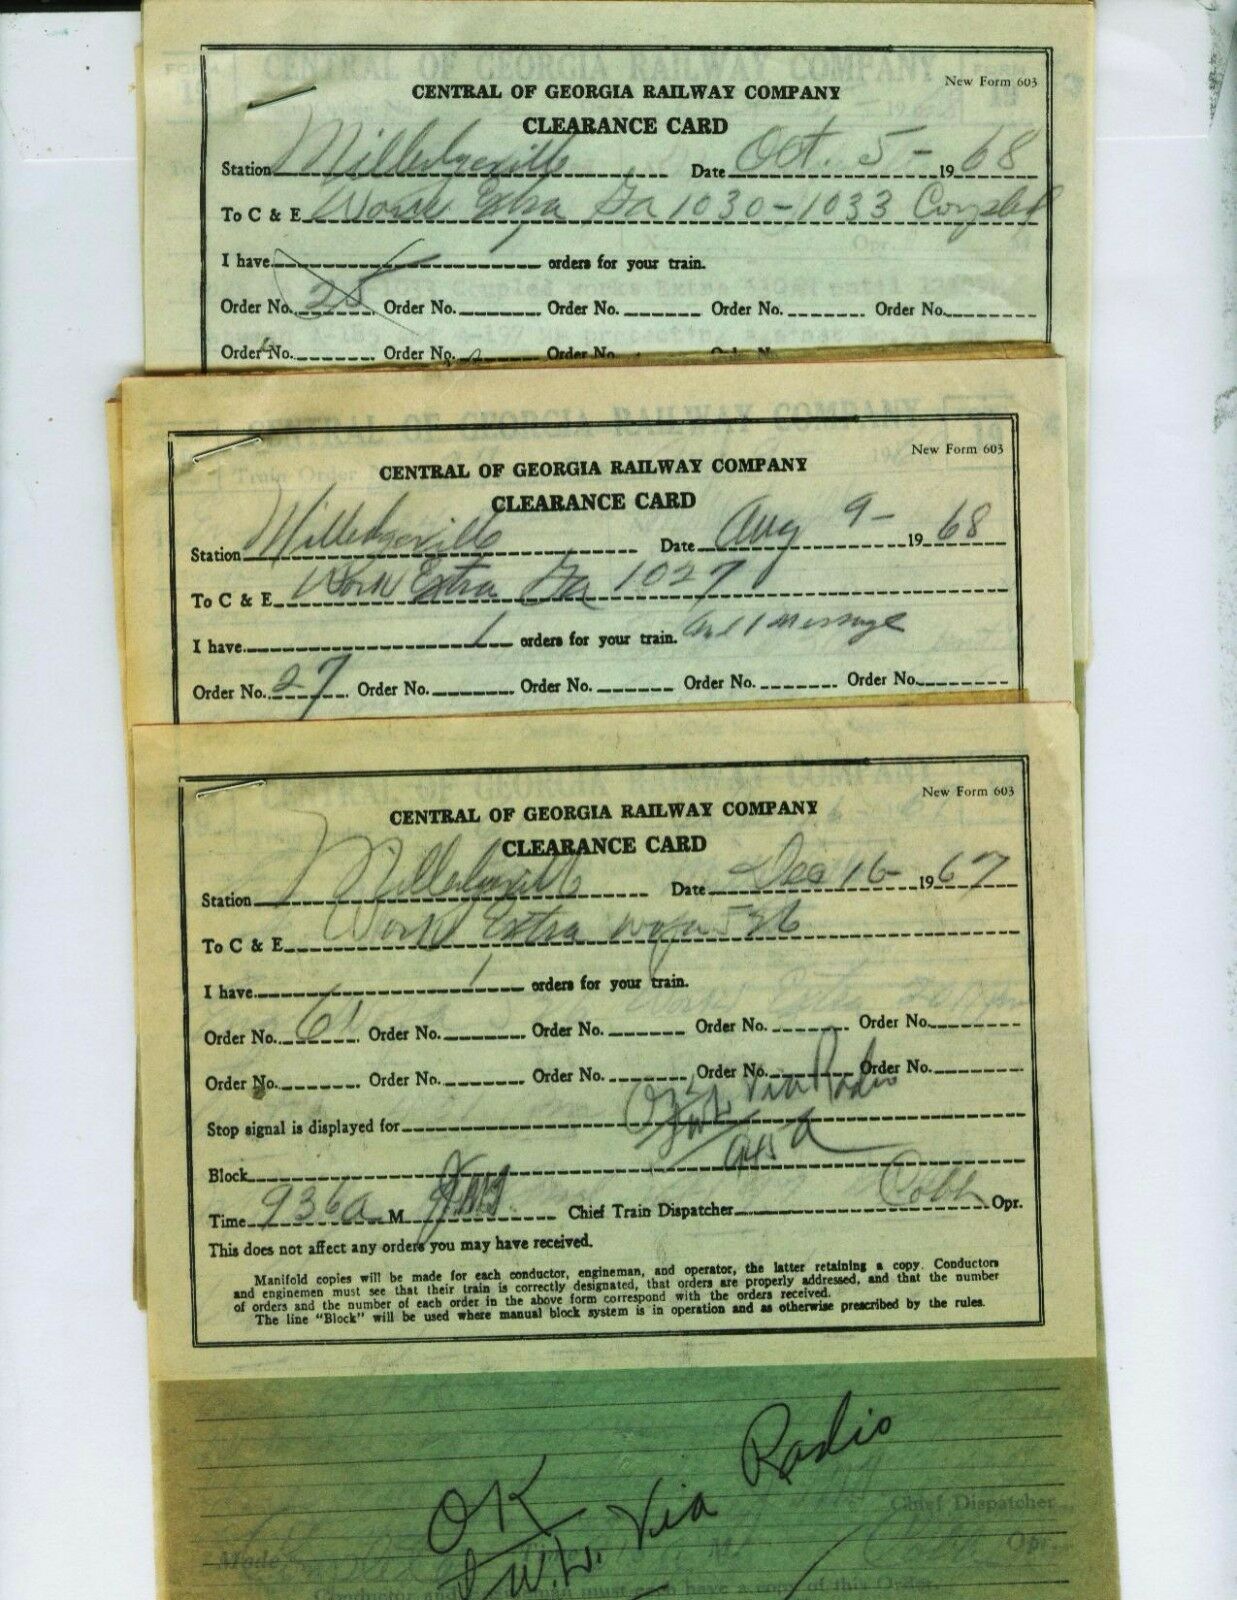 New Form 603
CENTRAL OF GEORGIA RAILWAY COMPANY
CLEARANCE CARD
Station Milledgeville Date Oct. 5- 1968
To C & E Work Extra Ga 1030-1033 Coupled
I have 1 orders for your train.
Order No. 25 Order No. Order No. Order No. Order No.
Order No. Order No. Order No. Order No.
New Form 603
CENTRAL OF GEORGIA RAILWAY COMPANY
CLEARANCE CARD
Station Milledgeville Date Aug 9- 1968
To C & E Work Extra Ga 1027
I have 1 orders for your train. and 1 message
Order No. 27 Order No. Order No. Order No. Order No.
New Form 603
CENTRAL OF GEORGIA RAILWAY COMPANY
CLEARANCE CARD
Station Milledgeville Date Dec 16- 1967
To C & E Work Extra 526
I have 1 orders for your train.
Order No. 61 Order No. Order No. Order No. Order No.
Order No. Order No. Order No. Order No. Order No.
OK Via Radio
Stop signal is displayed for
945 a
Block
Time 936a M Chief Train Dispatcher Cobb Opr.
This does not affect any orders you may have received.
Manifold copies will be made for each conductor, engineman, and operator, the latter retaining a copy. Conductors
and enginemen must see that their train is correctly designated, that orders are properly addressed, and that the number
of orders and the number of each order in the above form correspond with the orders received.
The line "Block" will be used where manual block system is in operation and as otherwise prescribed by the rules.
OK Via Radio
Chief Dispatcher
Made Time M Opr.
Conductor and Engineman must each have a copy of this Order.